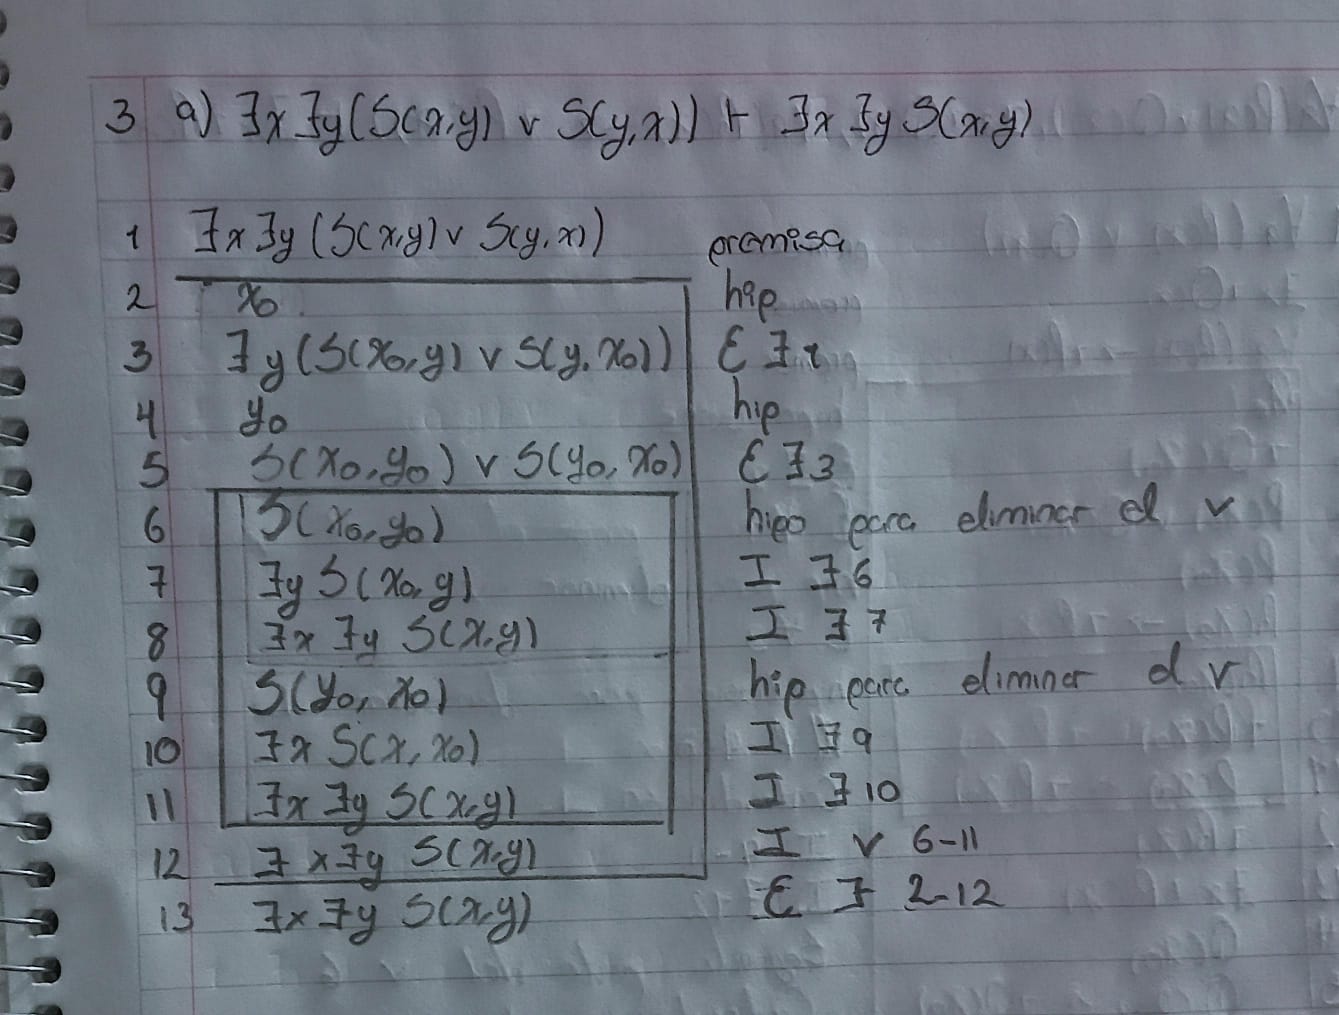 3 a) ∃x ∃y(S(x,y) v S(y,x)) ⊢ ∃x ∃y S(x,y)
1 ∃x ∃y (S(x,y) v S(y,x)) premisa
2 x₀ hip
3 ∃y (S(x₀,y) v S(y,x₀)) E ∃ 1
4 y₀ hip
5 S(x₀,y₀) v S(y₀,x₀) E ∃ 3
6 S(x₀,y₀) hipo para eliminar el v
7 ∃y S(x₀,y) I ∃ 6
8 ∃x ∃y S(x,y) I ∃ 7
9 S(y₀,x₀) hip para eliminar el v
10 ∃x S(x,x₀) I ∃ 9
11 ∃x ∃y S(x,y) I ∃ 10
12 ∃x ∃y S(x,y) I v 6-11
13 ∃x ∃y S(x,y) E ∃ 2-12